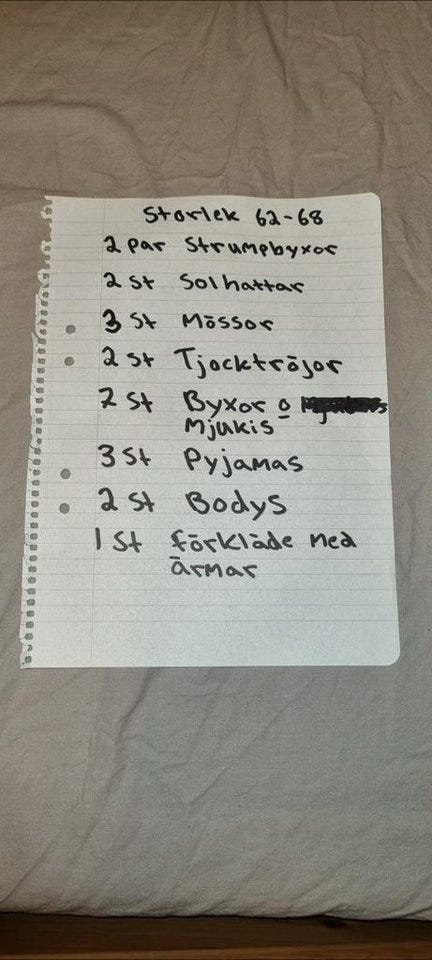 Storlek 62-68
2 par Strumpbyxor
2 st Solhattar
3 st Mössor
2 st Tjocktröjor
7 st Byxor o
Mjukis
3 st Pyjamas
2 st Bodys
1 st förkläde med
ärmar